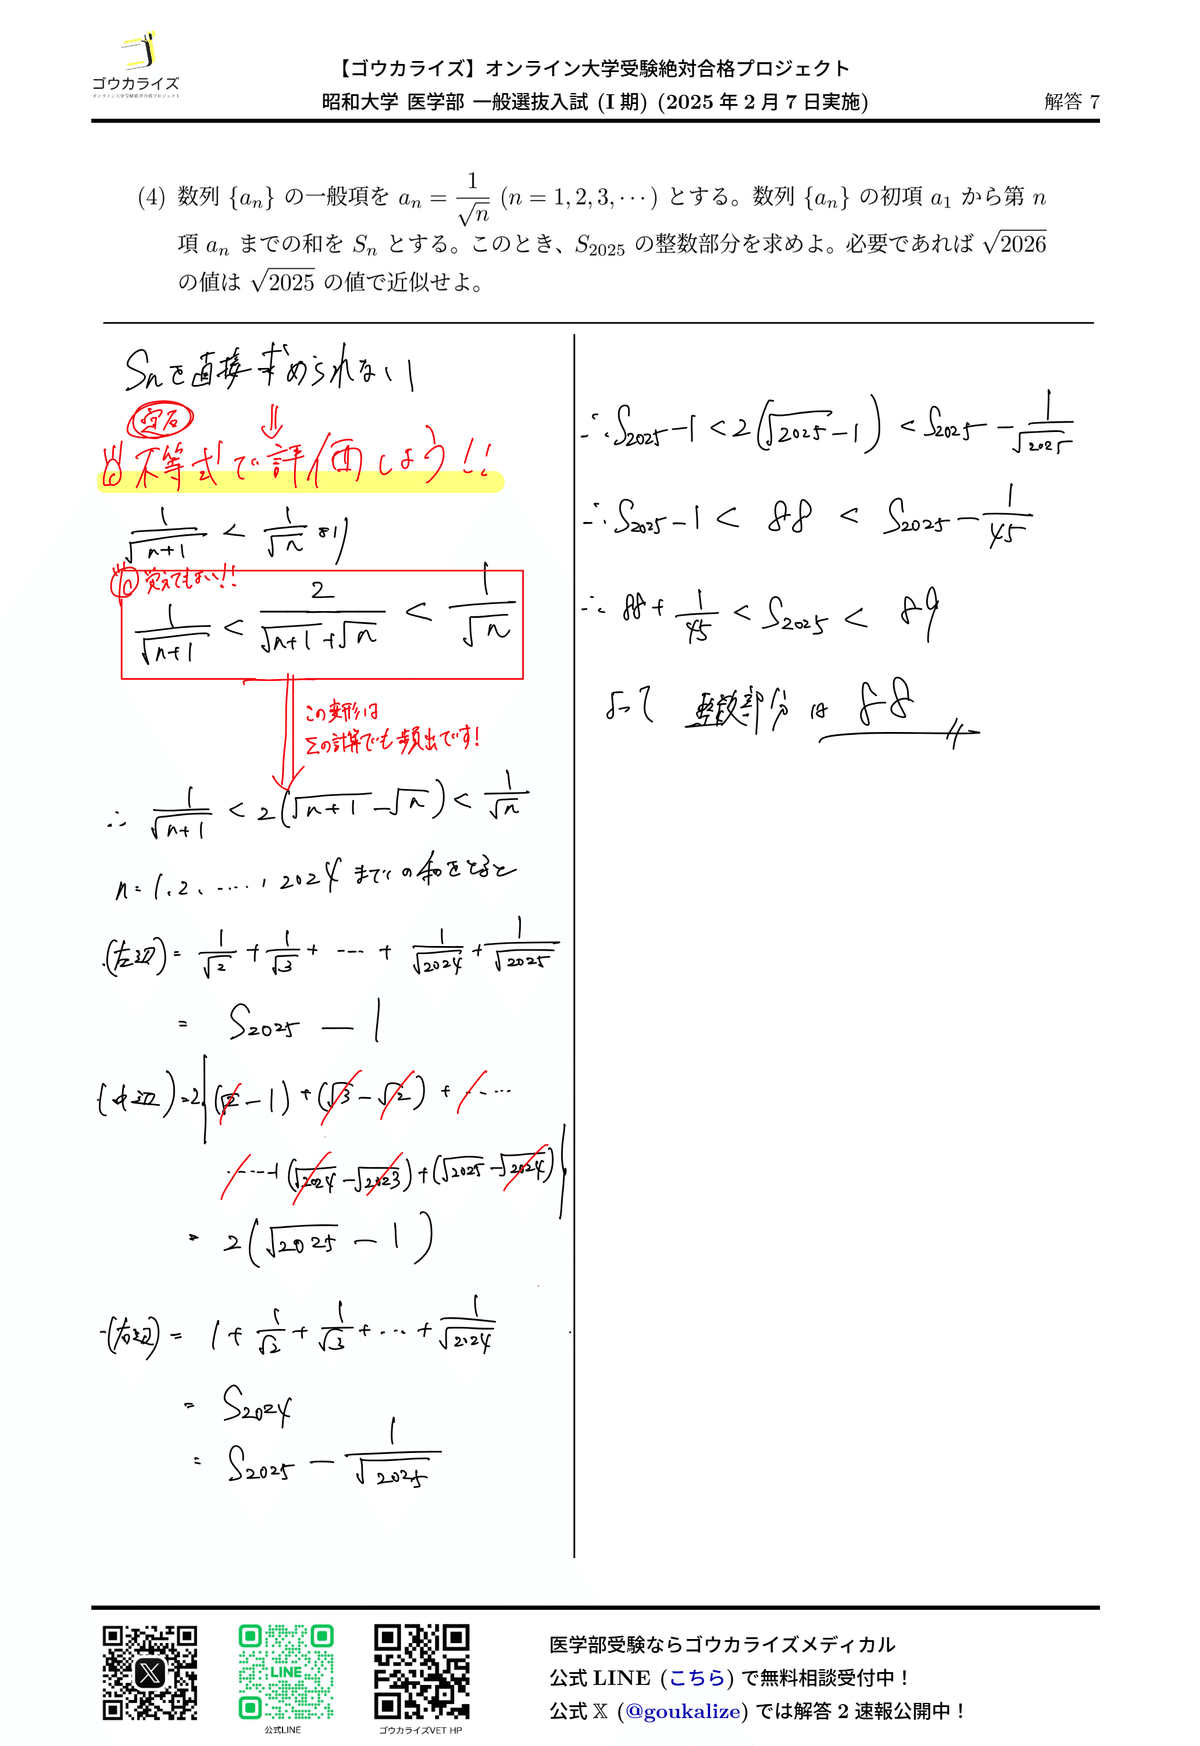 ゴウカライズ
オンライン大学受験絶対合格プロジェクト
【ゴウカライズ】オンライン大学受験絶対合格プロジェクト
昭和大学 医学部 一般選抜入試 (I 期) (2025 年 2 月 7 日実施)
解答 7
(4) 数列 {aₙ} の一般項を aₙ = 1/√n (n = 1, 2, 3, ⋯) とする。数列 {aₙ} の初項 a₁ から第 n
項 aₙ までの和を Sₙ とする。このとき、S₂₀₂₅ の整数部分を求めよ。必要であれば √2026
の値は √2025 の値で近似せよ。
Snを直接求められない
定石 ⇓
不等式で評価しよう!!
1/√(n+1) < 1/√n より
覚えてもよい!!
1/√(n+1) < 2/(√(n+1)+√n) < 1/√n
この変形は
Σの計算でも頻出です!
∴ 1/√(n+1) < 2(√(n+1)-√n) < 1/√n
n=1,2,……,2024 までの和をとると
(左辺) = 1/√2 + 1/√3 + ---- + 1/√2024 + 1/√2025
= S₂₀₂₅ - 1
(中辺) = 2{(√2 - 1) + (√3 - √2) + ‥‥
‥‥+(√2024 - √2023) + (√2025 - √2024)}
= 2(√2025 - 1)
(右辺) = 1 + 1/√2 + 1/√3 + ... + 1/√2024
= S₂₀₂₄
= S₂₀₂₅ - 1/√2025
∴ S₂₀₂₅ - 1 < 2(√2025 - 1) < S₂₀₂₅ - 1/√2025
∴ S₂₀₂₅ - 1 < 88 < S₂₀₂₅ - 1/45
∴ 88 + 1/45 < S₂₀₂₅ < 89
よって 整数部分は 88
LINE
公式LINE
ゴウカライズVET HP
医学部受験ならゴウカライズメディカル
公式 LINE (こちら) で無料相談受付中！
公式 𝕏 (@goukalize) では解答 2 速報公開中！